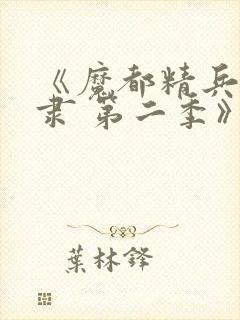 《魔都精兵
隶 第二季》
葉林鋒